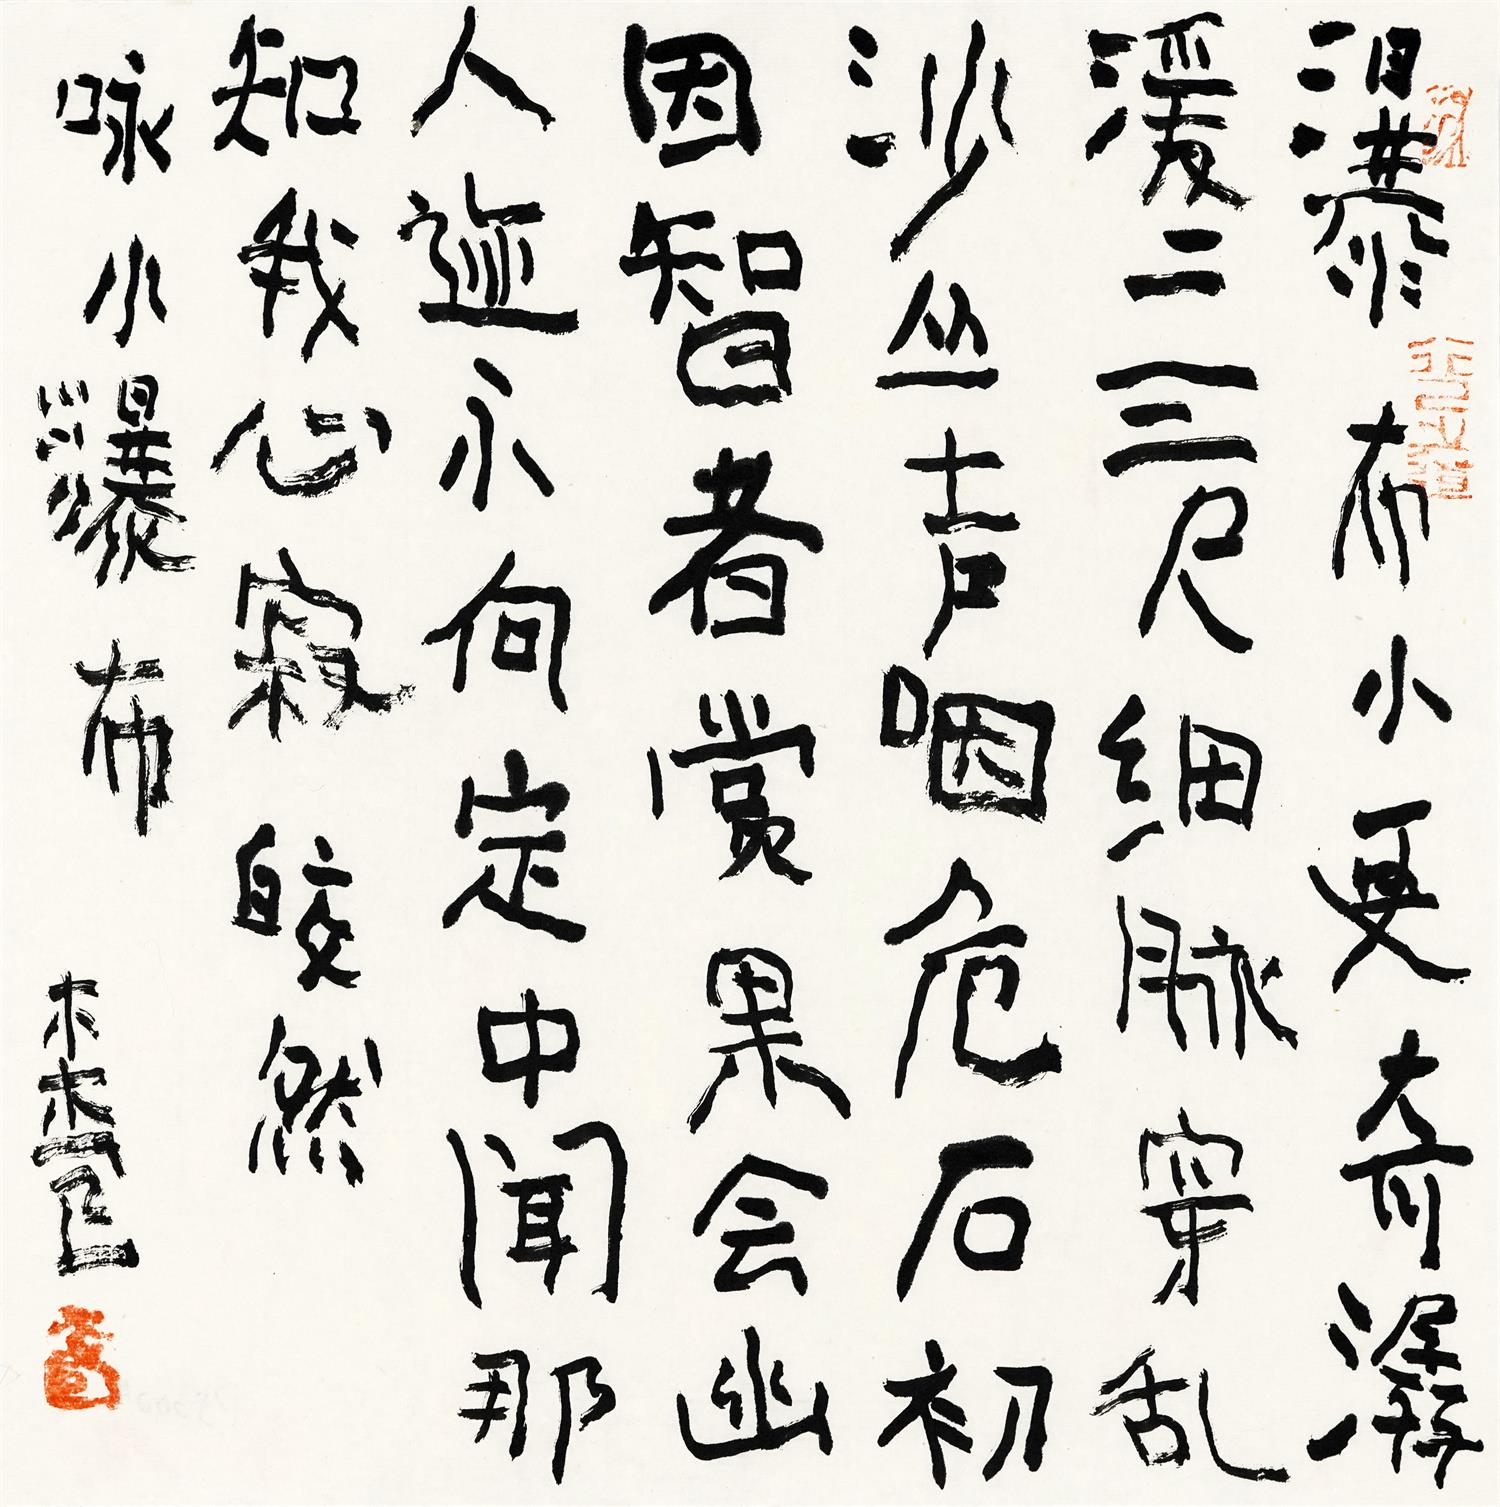 瀑布小更奇潺
湲二三尺细脉穿乱
沙丛声咽危石初
因智者赏果会幽
人迹永向定中闻那
知我心寂皎然
咏小瀑布